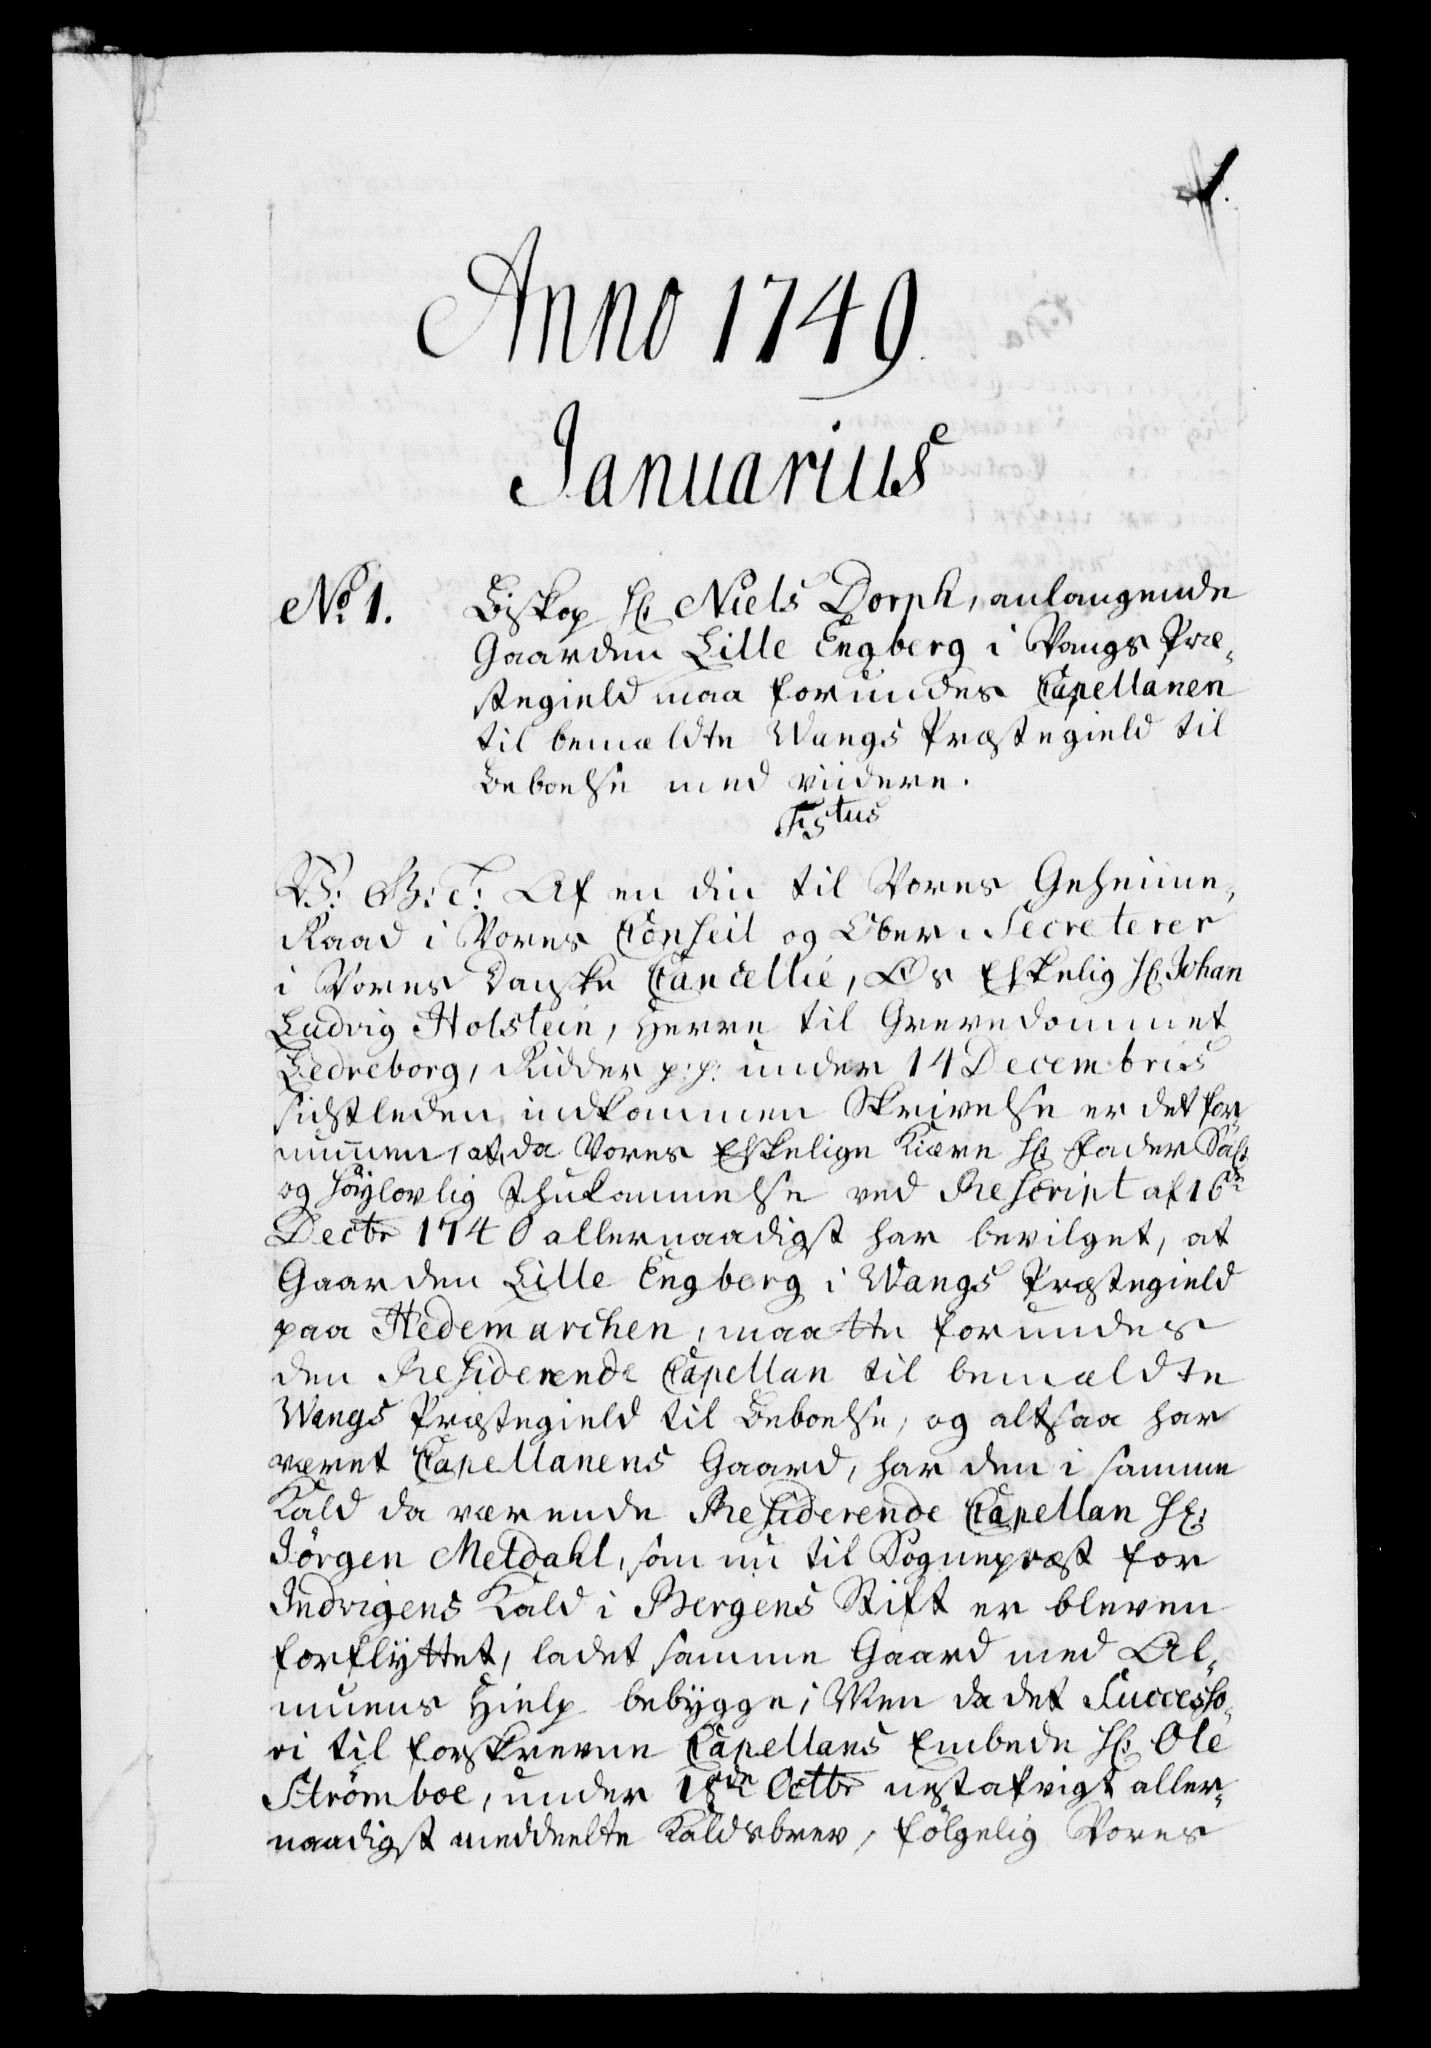 1.
Anno 1749.
Januarius
No 1.
Biskop Hr: Niels Dorph, anlangende
Gaarden Lille Engberg i Vangs Præ-
stegield maa forundes Capellanen
til bemældte Wangs Præstegield til
Beboelse med viidere.
F: G: T: Af en din til Vores Geheime-
Raad i Vores Conseil og Ober-Secreterer
i Vores Danske Cancellie, Os Elskelig Hr: Johan
Ludvig Holstein, Herre til Grevedommet
Ledreborg, Ridder p: p: under 14 Decembris
sidstleden indkommen Skrivelse er det for-
nummen, at, da Vores Elskelige Kiære Hr: Fader Sal:
og Høylovlig Ihukommelse ved Rescript af 16de
Decbr 1740 allernaadigst har bevilget, at
Gaarden Lille Engberg i Wangs Præstegield
paa Hedemarchen, maatte forundes
den Residerende Capellan til bemældte
Wangs Præstegield til Beboelse, og altsaa har
været Capellanens Gaard, har den i samme
Kald da værende Residerende Capellan Hr:
Jörgen Meldahl, som nu til Sognepræst for
Indvigens Kald i Bergens Stift er bleven
forflyttet, ladet samme Gaard med Al-
muens Hielp bebygge; Men da det Successo-
ri til forskrevne Capellans Embede Hr: Ole
Strömboe, under 18de Octbr nestafvigt aller-
naadigst meddeelte Kaldsbrev, fölgelig Vores